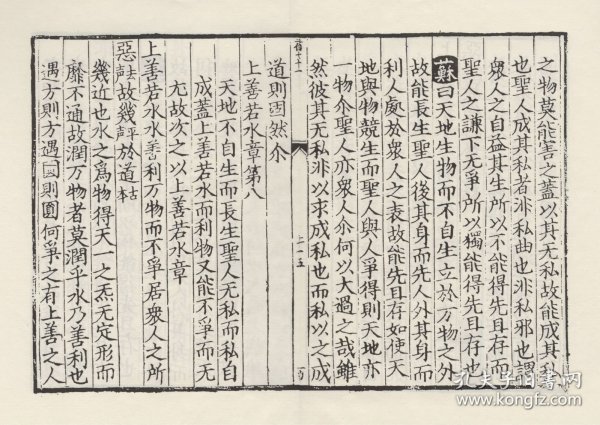 之物莫能害之蓋以其无私故能成其私
也聖人成其私者非私曲也非私邪也謂
衆人之自益其生所以不能得先且存而
聖人之謙下无爭所以獨能得先且存也
蘇曰天地生物而不自生立於万物之外
故能長生聖人後其身而先人外其身而
利人處於衆人之表故能先且存如使天
地與物競生而聖人與人爭得則天地亦
一物尒聖人亦衆人尒何以大過之哉雖
然彼其无私非以求成私也而私以之成
道則固然尒
上善若水章第八
天地不自生而長生聖人无私而私自
成蓋上善若水而利物又能不爭而无
尤故次之以上善若水章
上善若水水善利万物而不爭居衆人之所
惡去声故幾平声於道古本
幾近也水之爲物得天一之炁无定形而
靡不通故潤万物者莫潤乎水乃善利也
遇方則方遇圓則圓何爭之有上善之人
孔夫子旧书网
www.kongfz.com